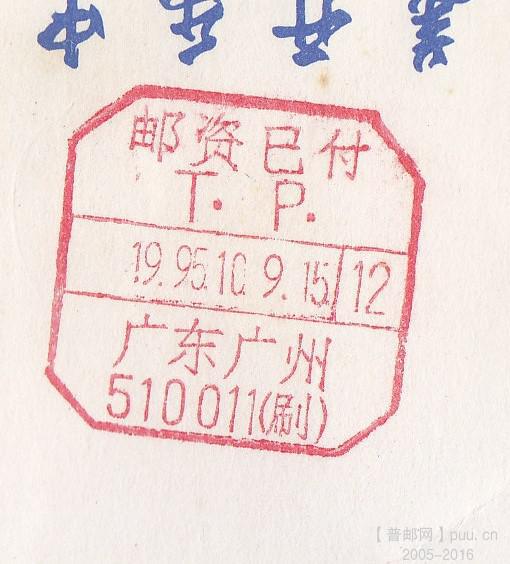 邮资已付
T. P.
19.95.10 9.15 12
广东广州
510011(刷)
【普邮网】puu.cn
2005-2016